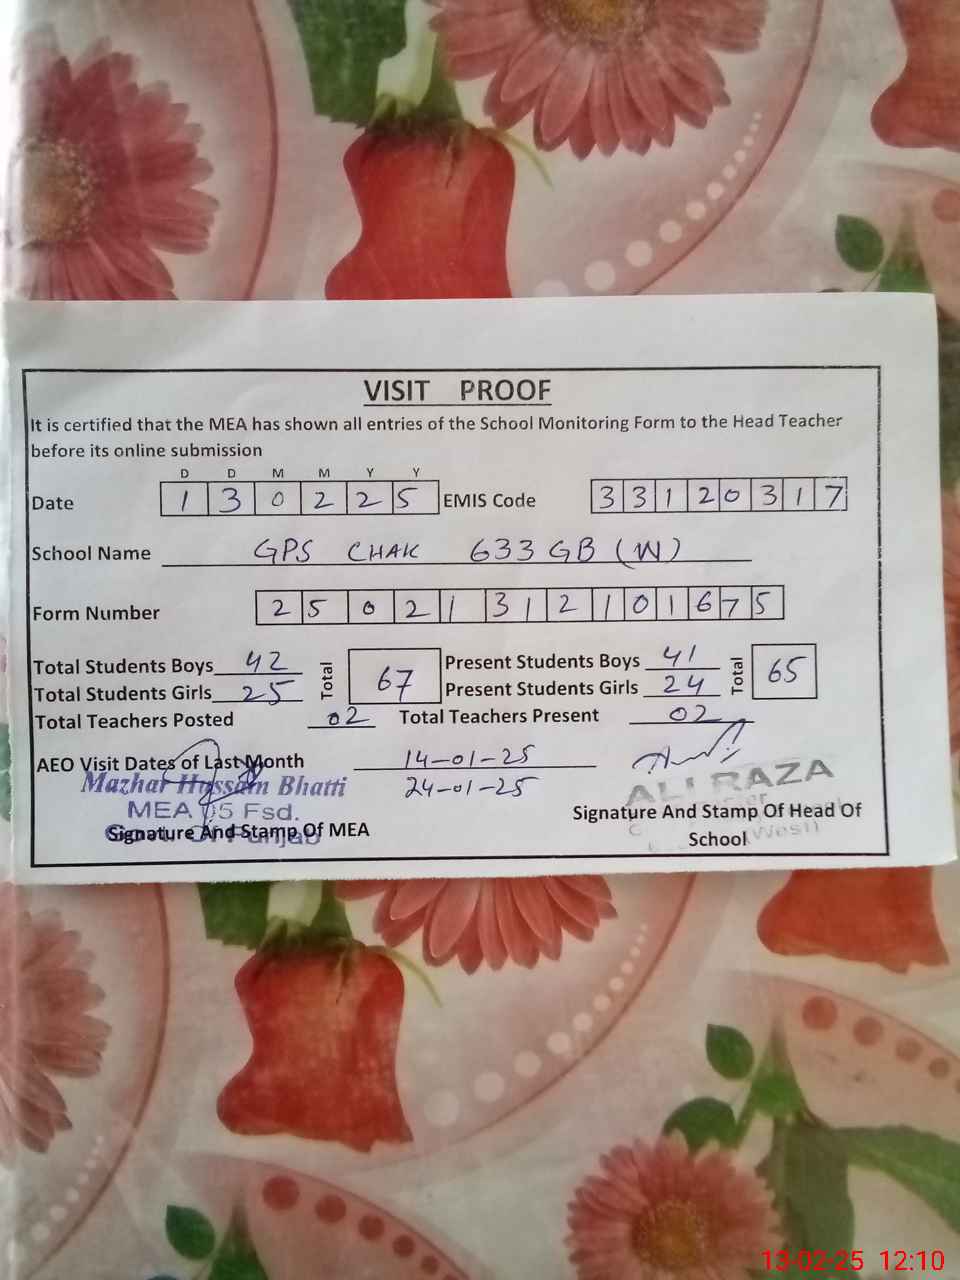 VISIT PROOF
It is certified that the MEA has shown all entries of the School Monitoring Form to the Head Teacher
before its online submission
D D M M Y Y
Date 1 3 0 2 2 5 EMIS Code 3 3 1 2 0 3 1 7
School Name GPS CHAK 633 GB (W)
Form Number 2 5 0 2 1 3 1 2 1 0 1 6 7 5
Total Students Boys 42 Total 67 Present Students Boys 41 Total 65
Total Students Girls 25 Present Students Girls 24
Total Teachers Posted 02 Total Teachers Present 02
AEO Visit Dates of Last Month 14-01-25
24-01-25
Mazhar Hussain Bhatti
MEA 05 Fsd.
Signature And Stamp Of MEA
Punjab
ALI RAZA
Signature And Stamp Of Head Of
School
(West)
13-02-25 12:10